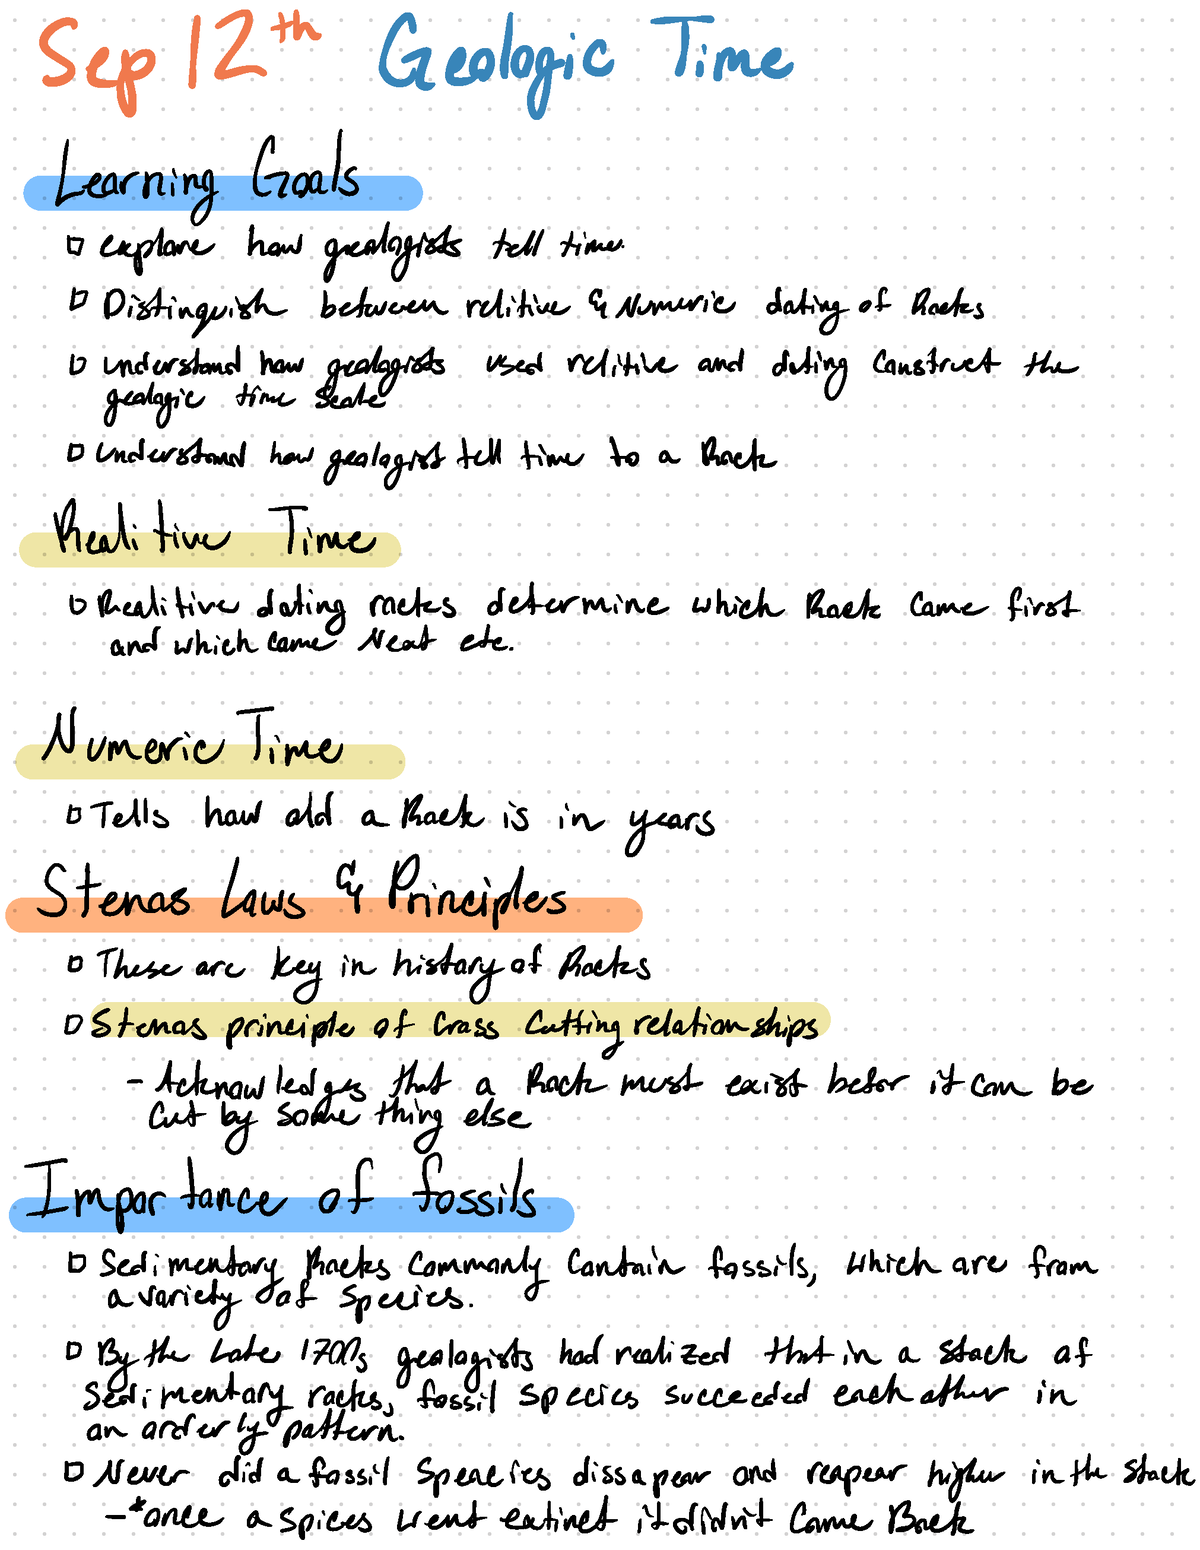 Sep 12th Geologic Time
Learning Goals
explane how geologists tell time.
Distinguish between relitive & Numeric dating of Rocks
understand how geologists used relitive and dating Construct the
geologic time Scale
understand how geologist tell time to a Rock
Realitive Time
Realitive dating rocks determine which Rock Came first
and which came Next etc.
Numeric Time
Tells how old a Rock is in years
Stenos Laws & Principles
These are key in history of Rocks
Stenos principle of Cross Cutting relationships
- Acknowledges that a Rock must exist befor it can be
Cut by something else
Importance of fossils
Sedimentary Rocks Commonly Contain fossils, which are from
a variety of Species.
By the Late 1700s geologists had realized that in a Stack of
Sedimentary rocks, fossil species succeeded each other in
an orderly pattern.
Never did a fossil Speacies dissapear and reapear higher in the Stack
-*once a spices went extinct it didn't Come Back